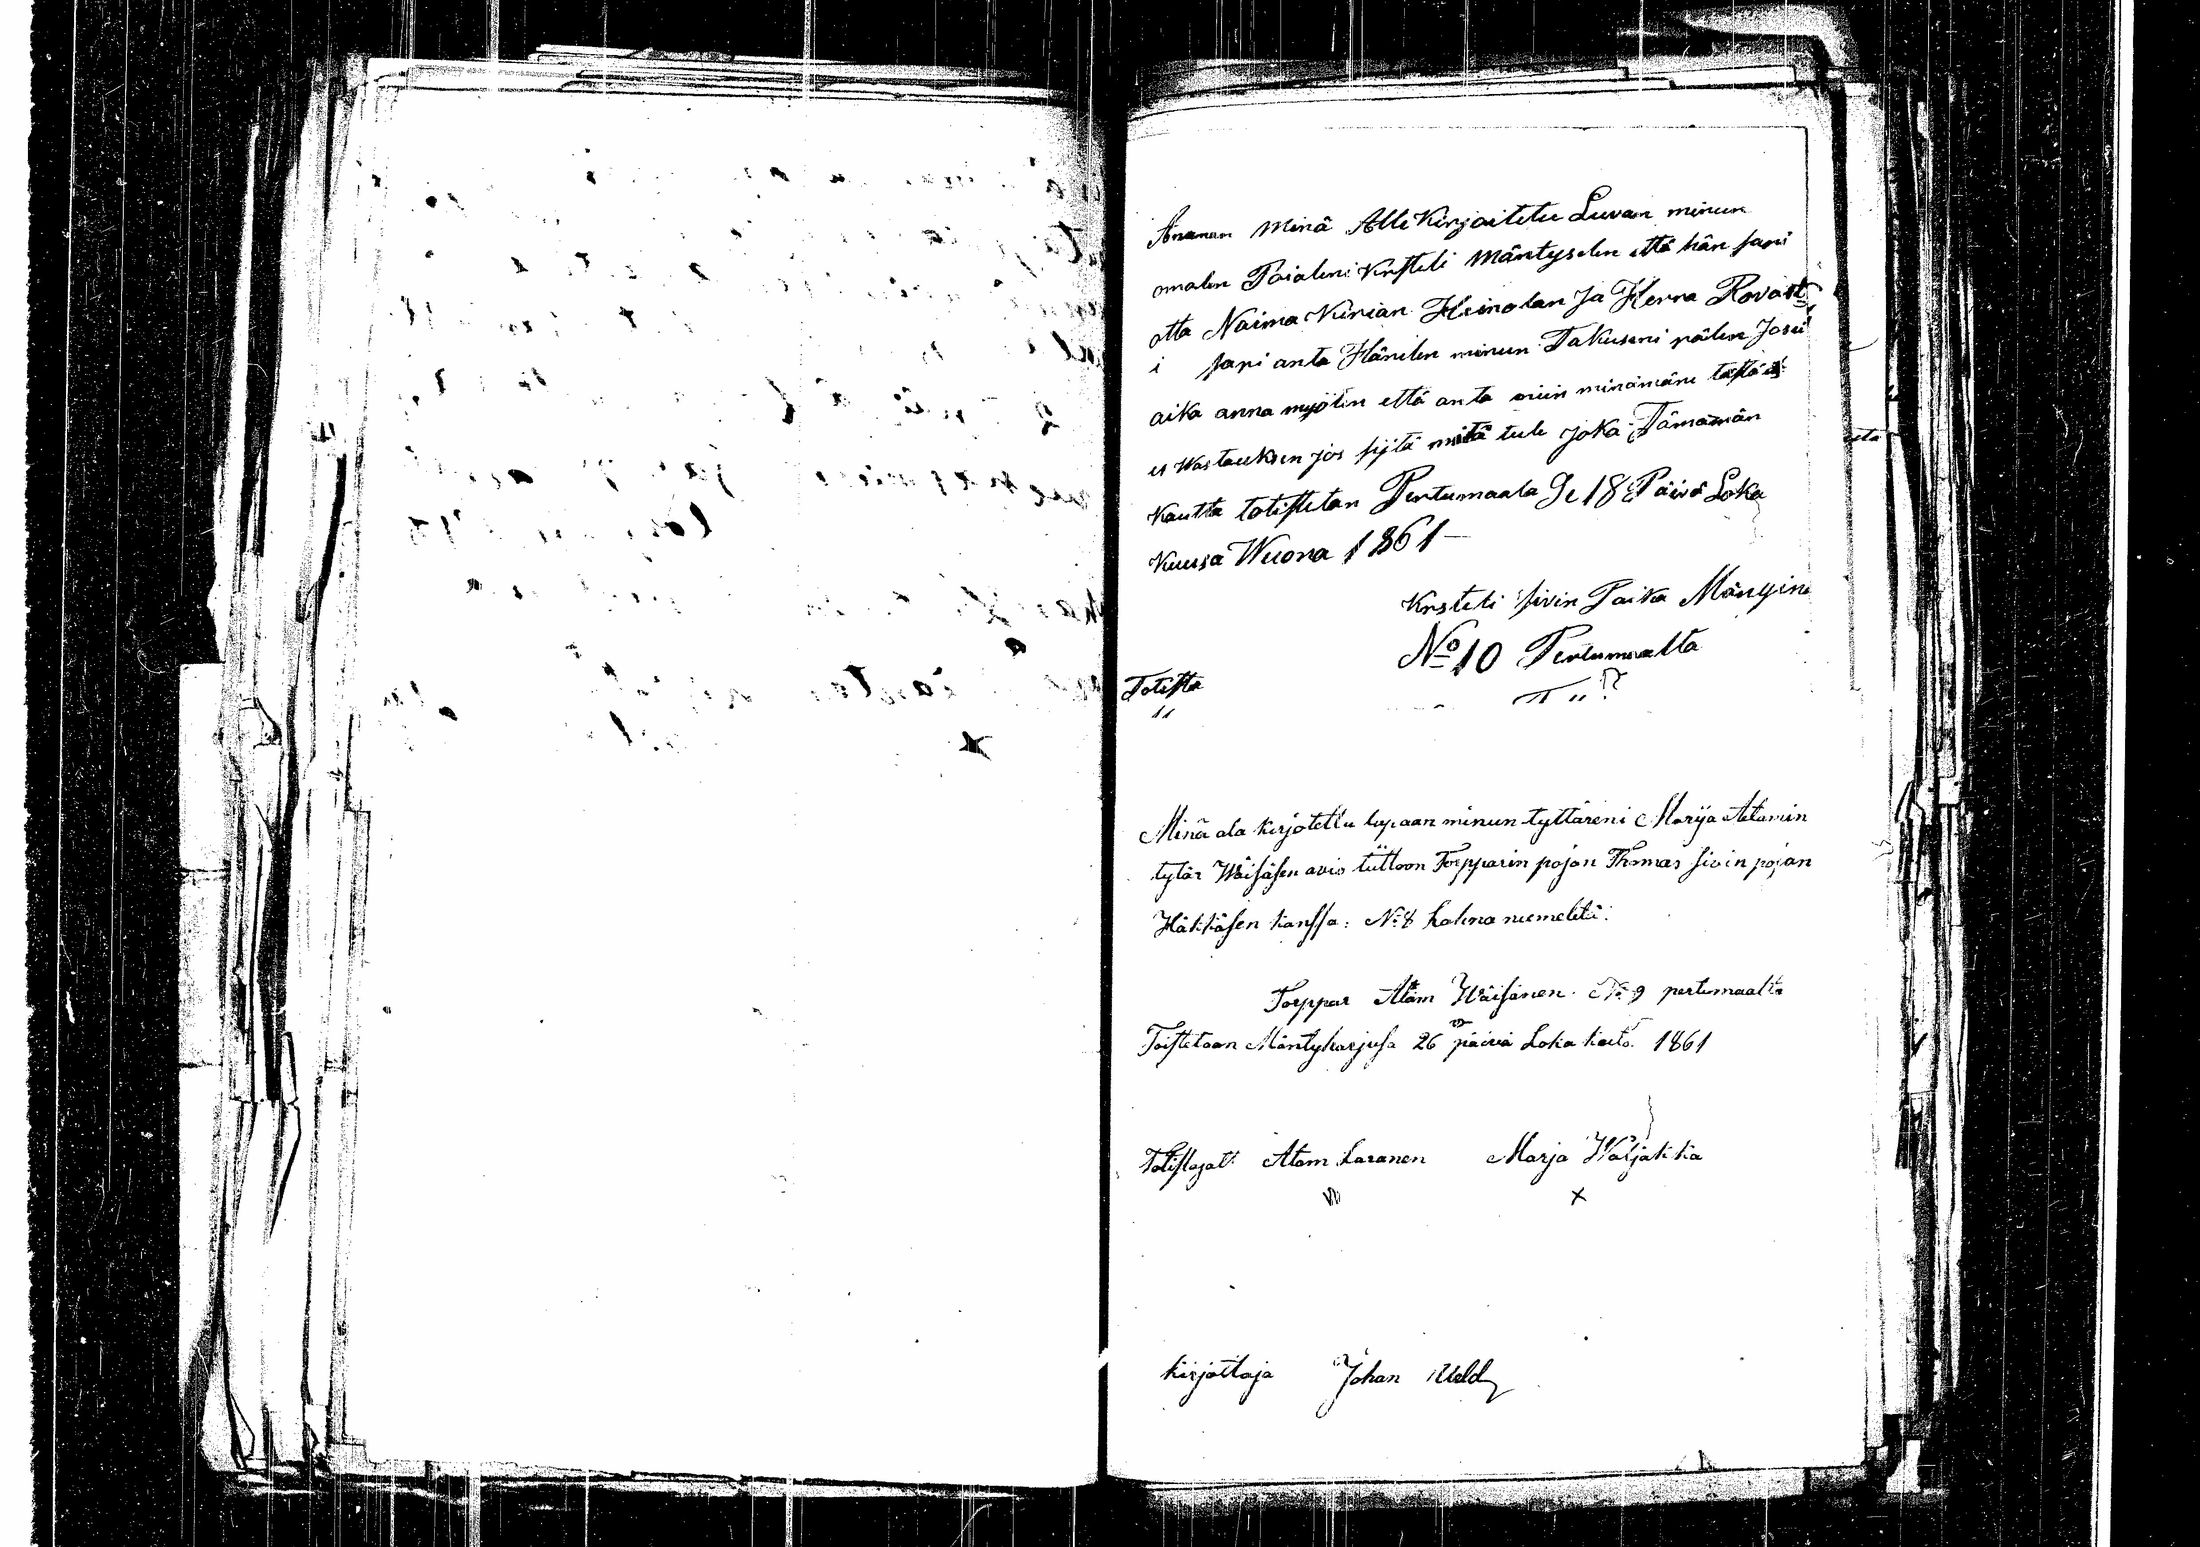 Annan minä Alle Kirjoitetu Luvan minun
omalen Poialeni Kristeli Mäntyselen että hän sapi
otta Naima Kirian Heinolan Ja Herra Rovast
i sapi anta Hänelen minun Takuseni päälen Josei
aika anna myöten että anta niin minämäne tästä
es Wastauksen jos syitä mitä tule Joka Tämämän
Kautta totistetan Pertumaala Se 18 Päivä Loka
Kuusa Wuona 1861
Kristeli Sivin Poika Mäntyine
No 10 Pertumaalta
Totista
Minä ala kirjotettu lupaan minun tyttäreni Marija Atamin
tytär Wäisäsen avio liittoon Torpparin pojan Thomas Sivin pojan
Häkkäsen kanssa: No 8 kalma niemeltä.
Torppar Atam Wäisänen No 9 pertumaalta
Toistetaan Mäntyharjusa 26 päivä Loka kuuta 1861
Totistajatt Atam Laranen Marja Warjakka
x
kirjottaja Johan Ueld